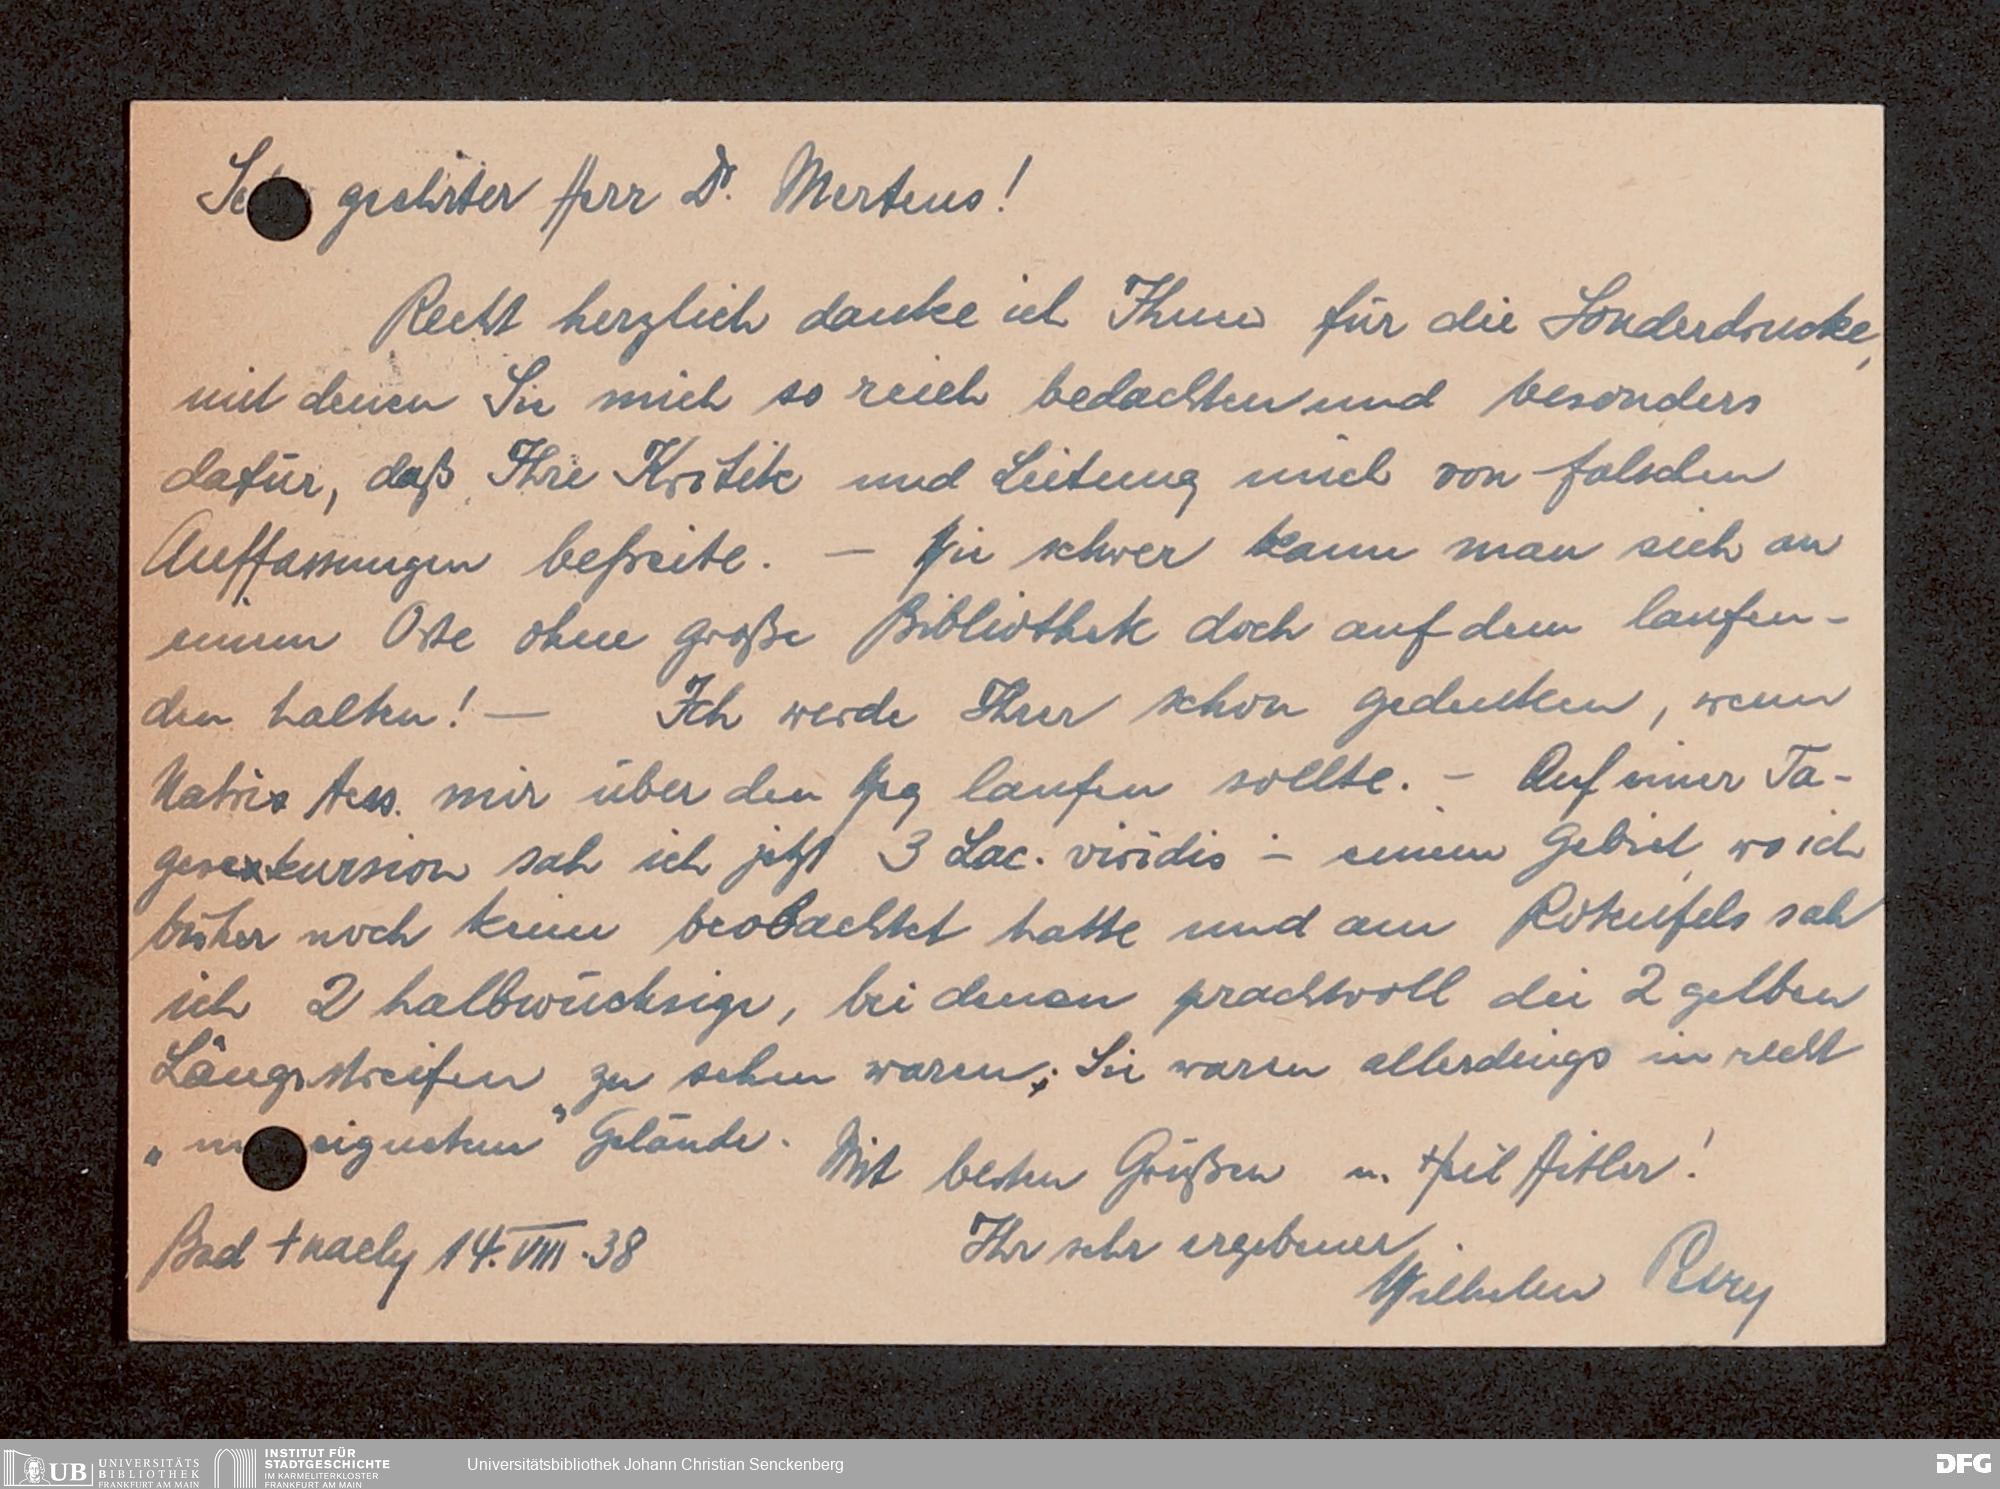 Sehr geehrter Herr Dr. Mertens!
Recht herzlich danke ich Ihnen für die Sonderdrucke,
mit denen Sie mich so reich bedachten und besonders
dafür, daß Ihre Kritik und Leitung mich von falschen
Auffassungen befreite. — Wie schwer kann man sich an
einem Orte ohne große Bibliothek doch auf dem laufen-
den halten! — Ich werde Ihrer schon gedenken, wenn
Natrix tess. mir über den Weg laufen sollte. — Auf einer Ta-
gesexkursion sah ich jetzt 3 Lac. viridis — einem Gebiet, wo ich
bisher noch keine beobachtet hatte und am Rotenfels sah
ich 2 halbwüchsige, bei denen prachtvoll die 2 gelben
Längsstreifen zu sehen waren; Sie waren allerdings in recht
„ungeeigneten" Gelände.
Mit besten Grüßen u. Heil Hitler!
Bad Knach 14.VIII.38
Ihr sehr ergebener
Wilhelm
UB UNIVERSITÄTS BIBLIOTHEK FRANKFURT AM MAIN
INSTITUT FÜR STADTGESCHICHTE IM KARMELITERKLOSTER FRANKFURT AM MAIN
Universitätsbibliothek Johann Christian Senckenberg
DFG